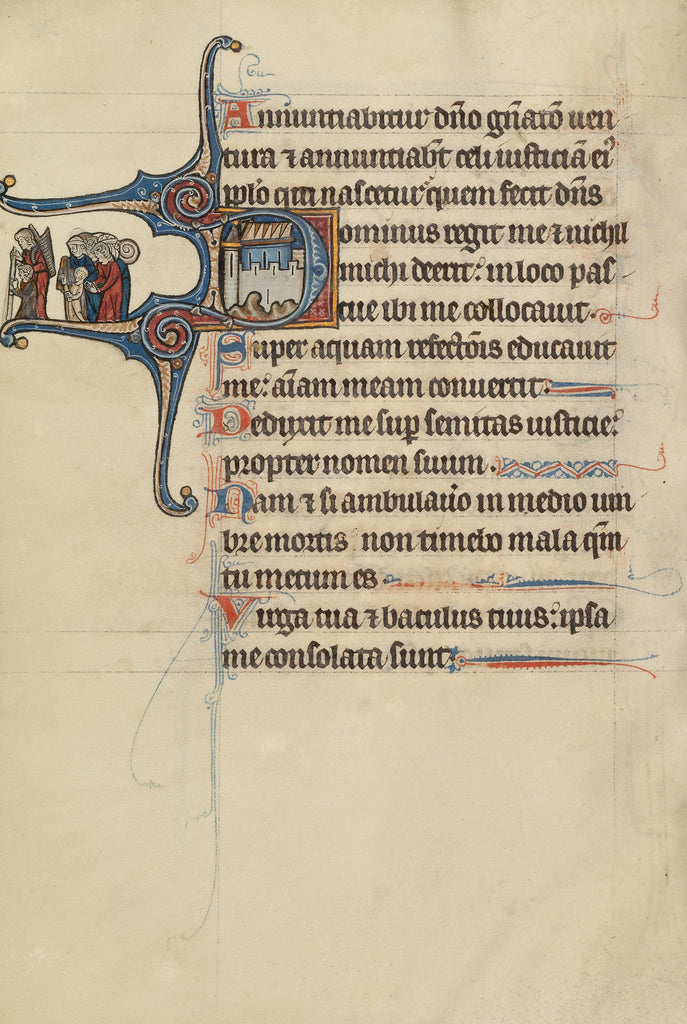 Annuntiabitur dño gñatõ uen
tura ⁊ annuntiabt̃ celi iusticiã ei᷒
pplõ qui nascetur quem fecit dñs
Dominus regit me ⁊ nichil
michi deerit: in loco pas
cue ibi me collocauit.
Super aquam refectõis educauit
me: aĩam meam conuertit:
Deduxit me sup̱ semitas iusticie:
propter nomen suum.
Nam ⁊ si ambulauo in medio um
bre mortis non timebo mala qm̃
tu mecum es
Virga tua ⁊ baculus tuus: ipsa
me consolata sunt: